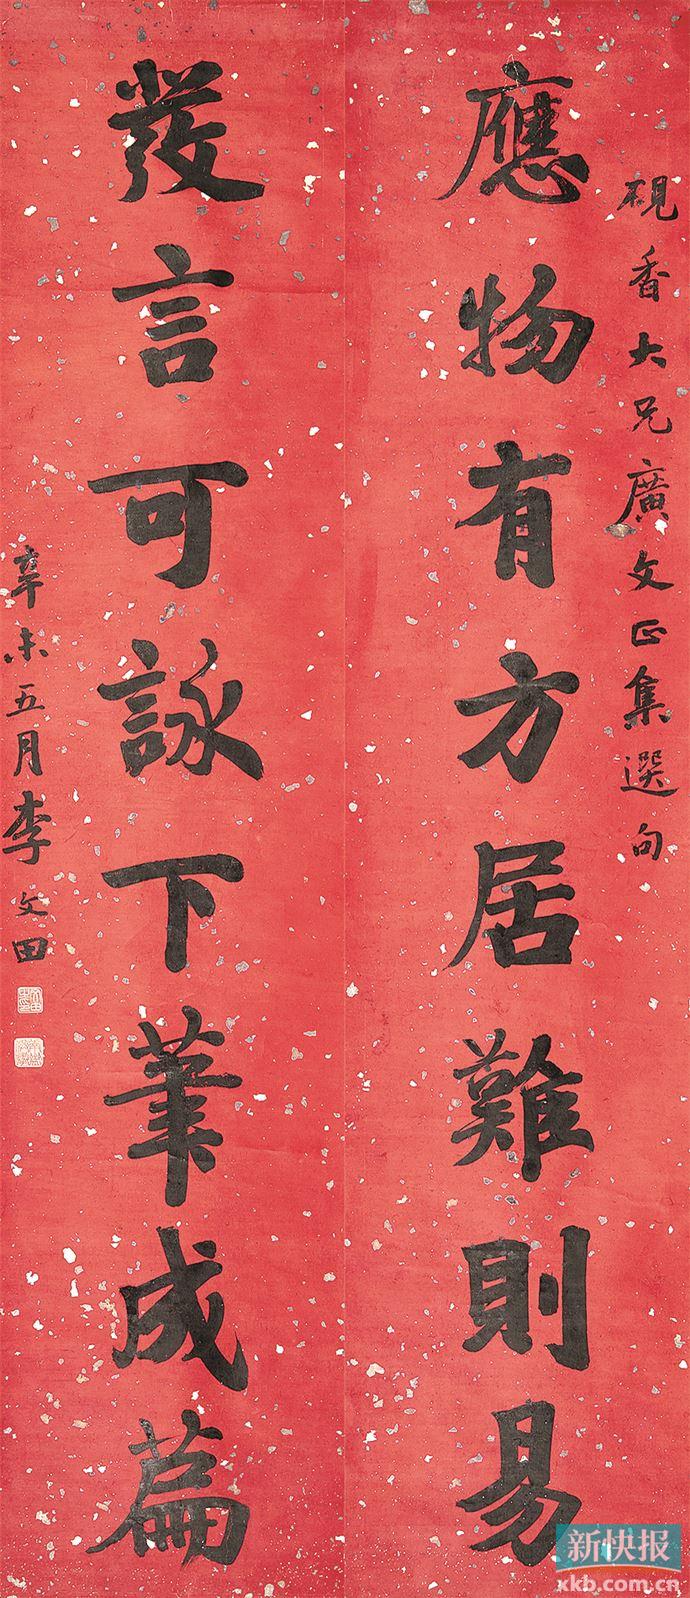 硯香大兄廣文正集選句
應物有方居難則易
發言可詠下筆成篇
辛未五月李文田
新快报
xkb.com.cn